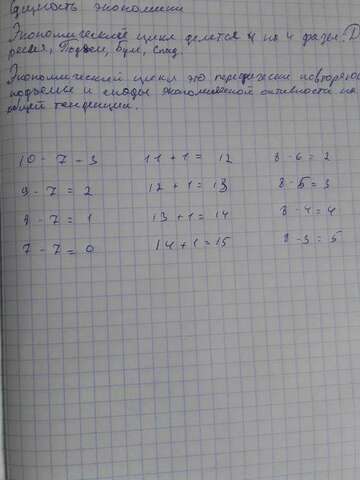 Сущность экономики
Экономический цикл делется н на 4 фазы: Д
рессия, Подъем, Бум, Спад.
Экономический цикл это переодически повторяю
подъемы и спады экономической активности на
общей тенденции.
10 - 7 - 3 11 + 1 = 12 8 - 6 = 2
9 - 7 = 2 12 + 1 = 13 8 - 5 = 3
8 - 7 = 1 13 + 1 = 14 8 - 4 = 4
7 - 7 = 0 14 + 1 = 15 8 - 3 = 5